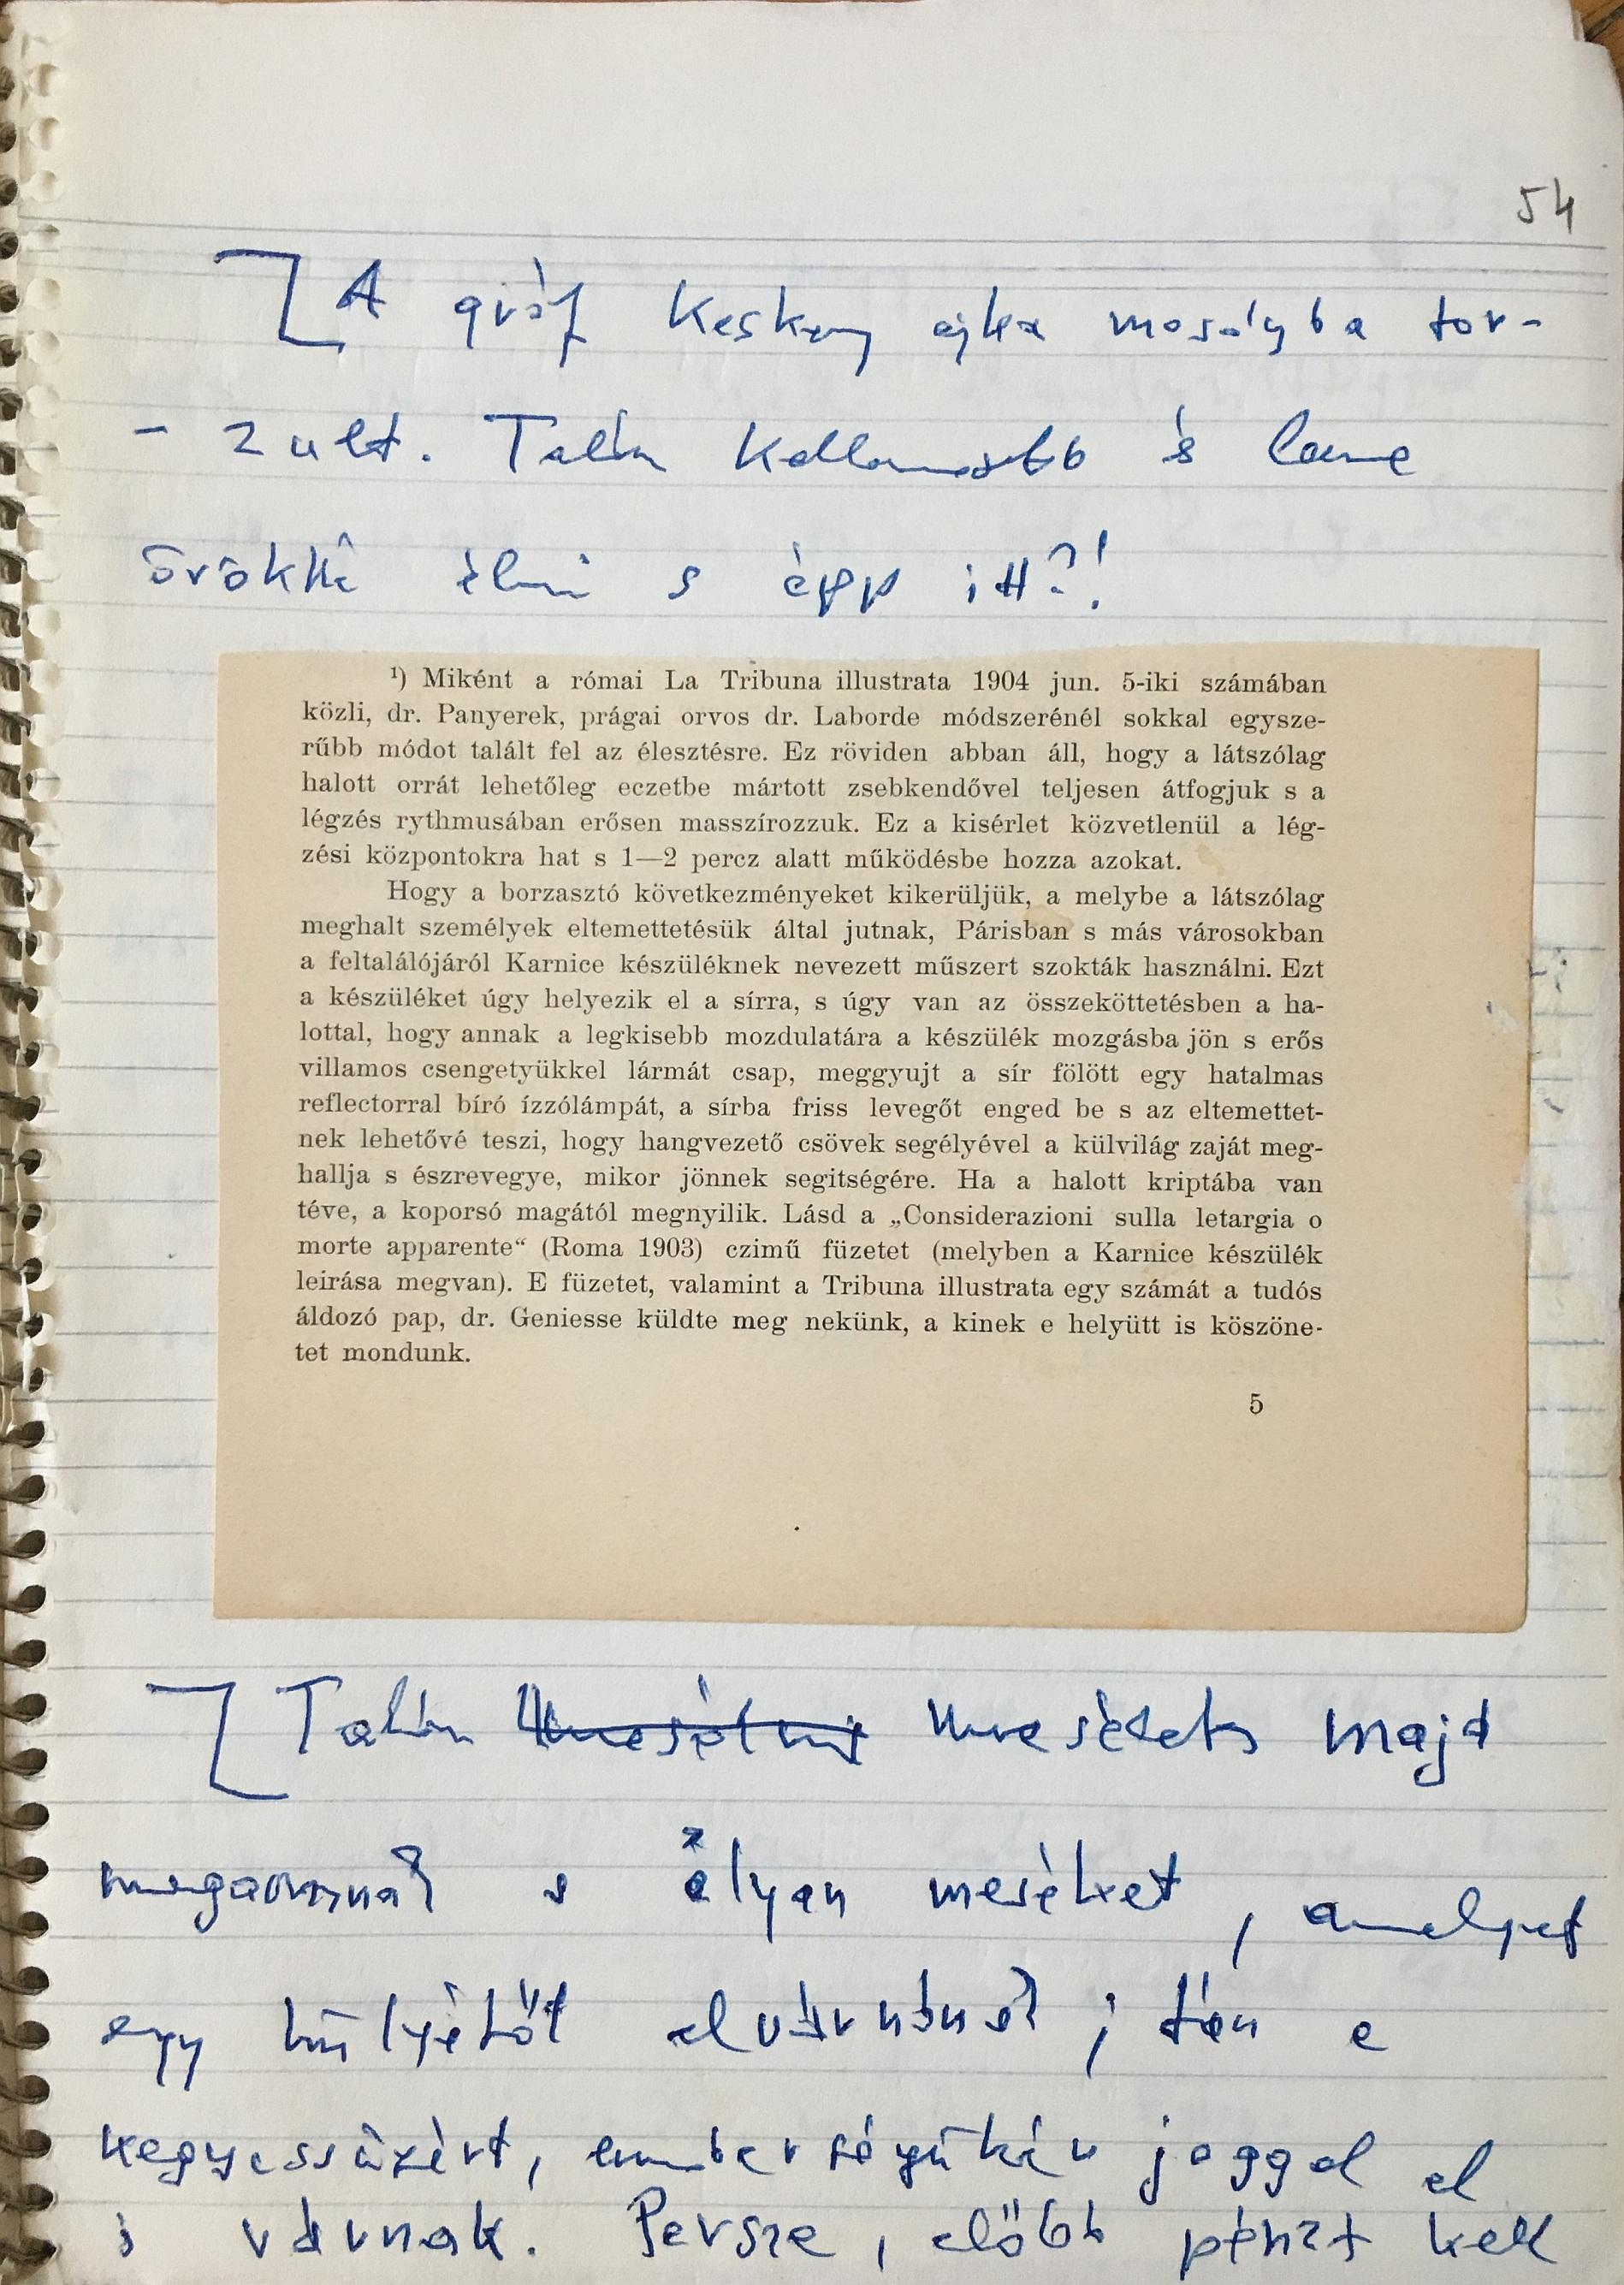 54
A gróf keskeny ajka mosolyba tor-
- zult. Talán kellemesebb is lenne
örökké élni s épp itt?!
¹) Miként a római La Tribuna illustrata 1904 jun. 5-iki számában
közli, dr. Panyerek, prágai orvos dr. Laborde módszerénél sokkal egysze-
rűbb módot talált fel az élesztésre. Ez röviden abban áll, hogy a látszólag
halott orrát lehetőleg eczetbe mártott zsebkendővel teljesen átfogjuk s a
légzés rythmusában erősen masszírozzuk. Ez a kisérlet közvetlenül a lég-
zési központokra hat s 1—2 percz alatt működésbe hozza azokat.
Hogy a borzasztó következményeket kikerüljük, a melybe a látszólag
meghalt személyek eltemettetésük által jutnak, Párisban s más városokban
a feltalálójáról Karnice készüléknek nevezett műszert szokták használni. Ezt
a készüléket úgy helyezik el a sírra, s úgy van az összeköttetésben a ha-
lottal, hogy annak a legkisebb mozdulatára a készülék mozgásba jön s erős
villamos csengetyükkel lármát csap, meggyujt a sír fölött egy hatalmas
reflectorral bíró ízzólámpát, a sírba friss levegőt enged be s az eltemettet-
nek lehetővé teszi, hogy hangvezető csövek segélyével a külvilág zaját meg-
hallja s észrevegye, mikor jönnek segitségére. Ha a halott kriptába van
téve, a koporsó magától megnyilik. Lásd a „Considerazioni sulla letargia o
morte apparente“ (Roma 1903) czimű füzetet (melyben a Karnice készülék
leirása megvan). E füzetet, valamint a Tribuna illustrata egy számát a tudós
áldozó pap, dr. Geniesse küldte meg nekünk, a kinek e helyütt is köszöne-
tet mondunk.
5
Talán mesélni mesélek majd
magamnak s olyan meséket, amelyet
egy hülyétől elvárnának; tán e
kegyességért, emberségükér joggal el
is várnak. Persze, előbb pénzt kell